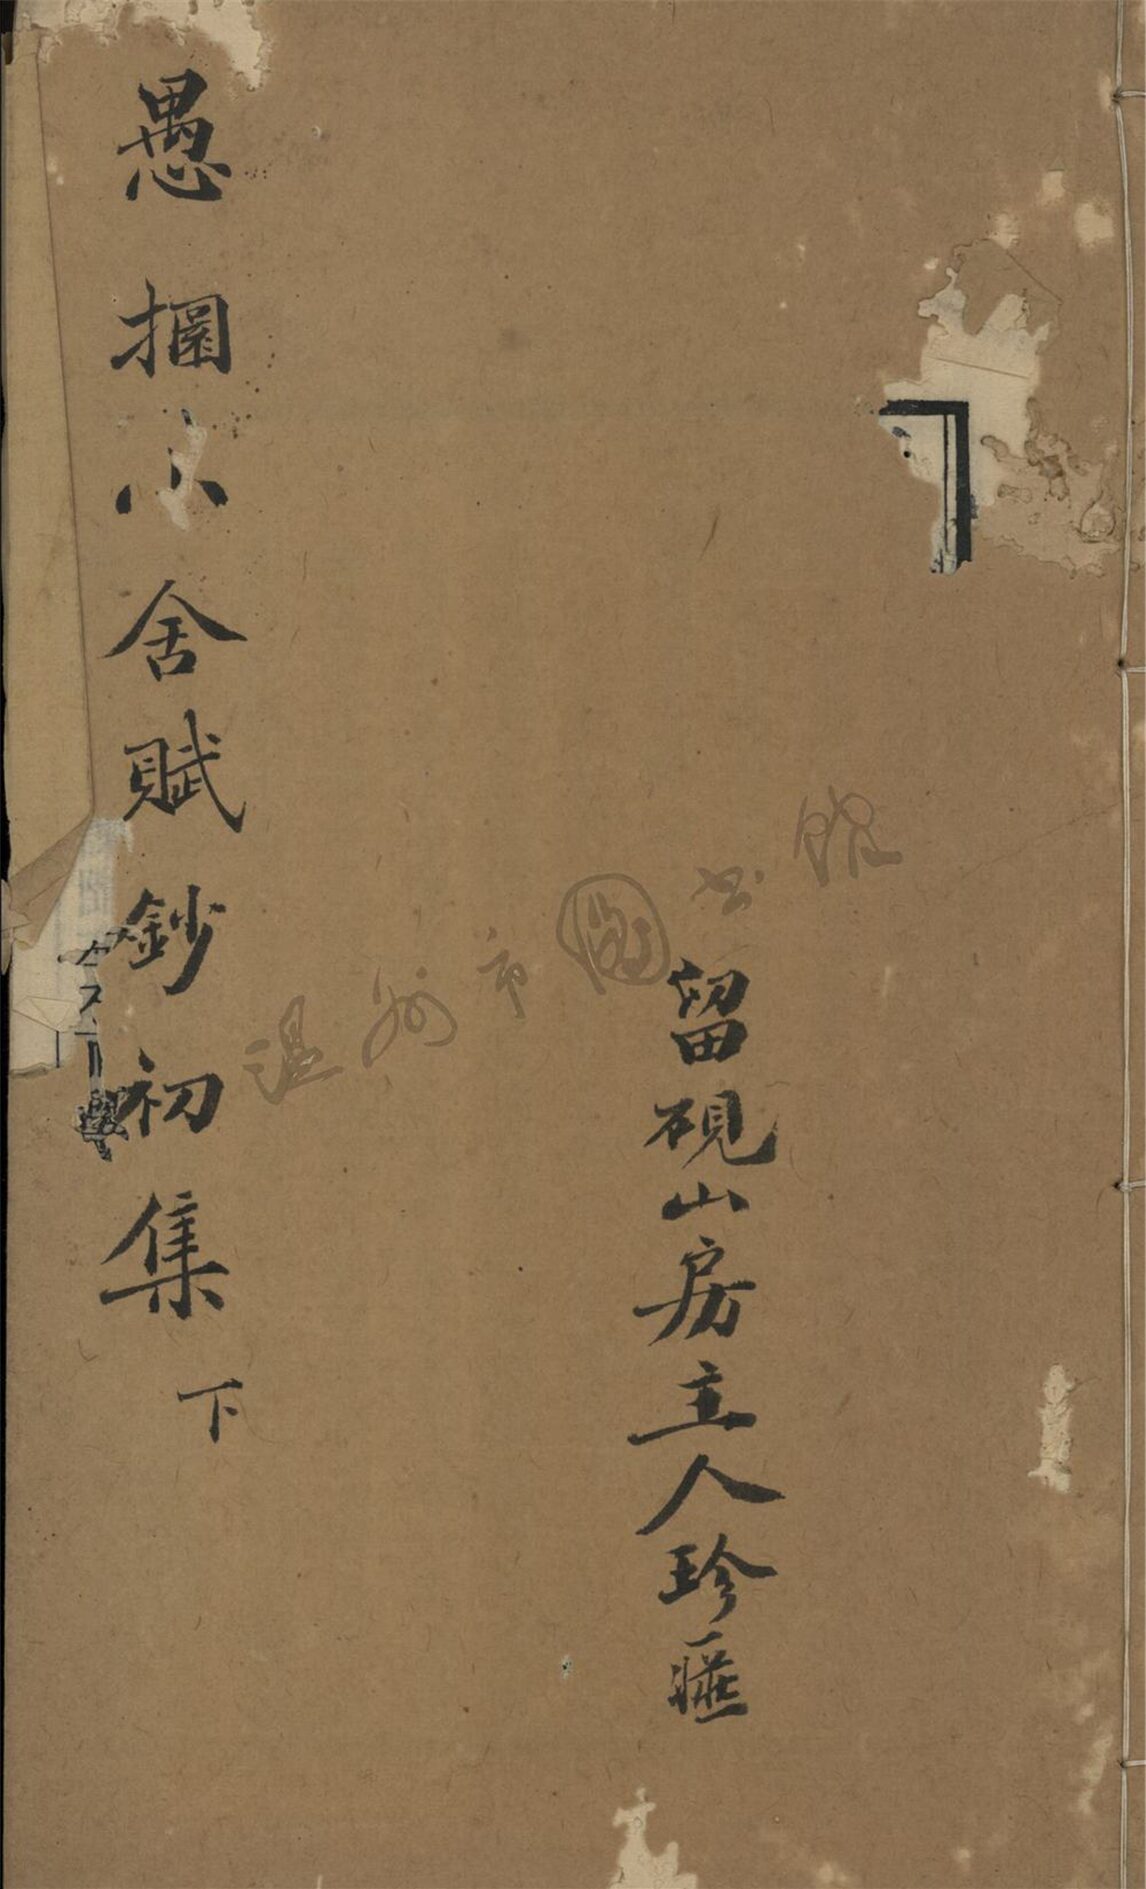 留硯山房主人珍匨
愚掴小舍賦鈔初集 下
温州市圖书馆